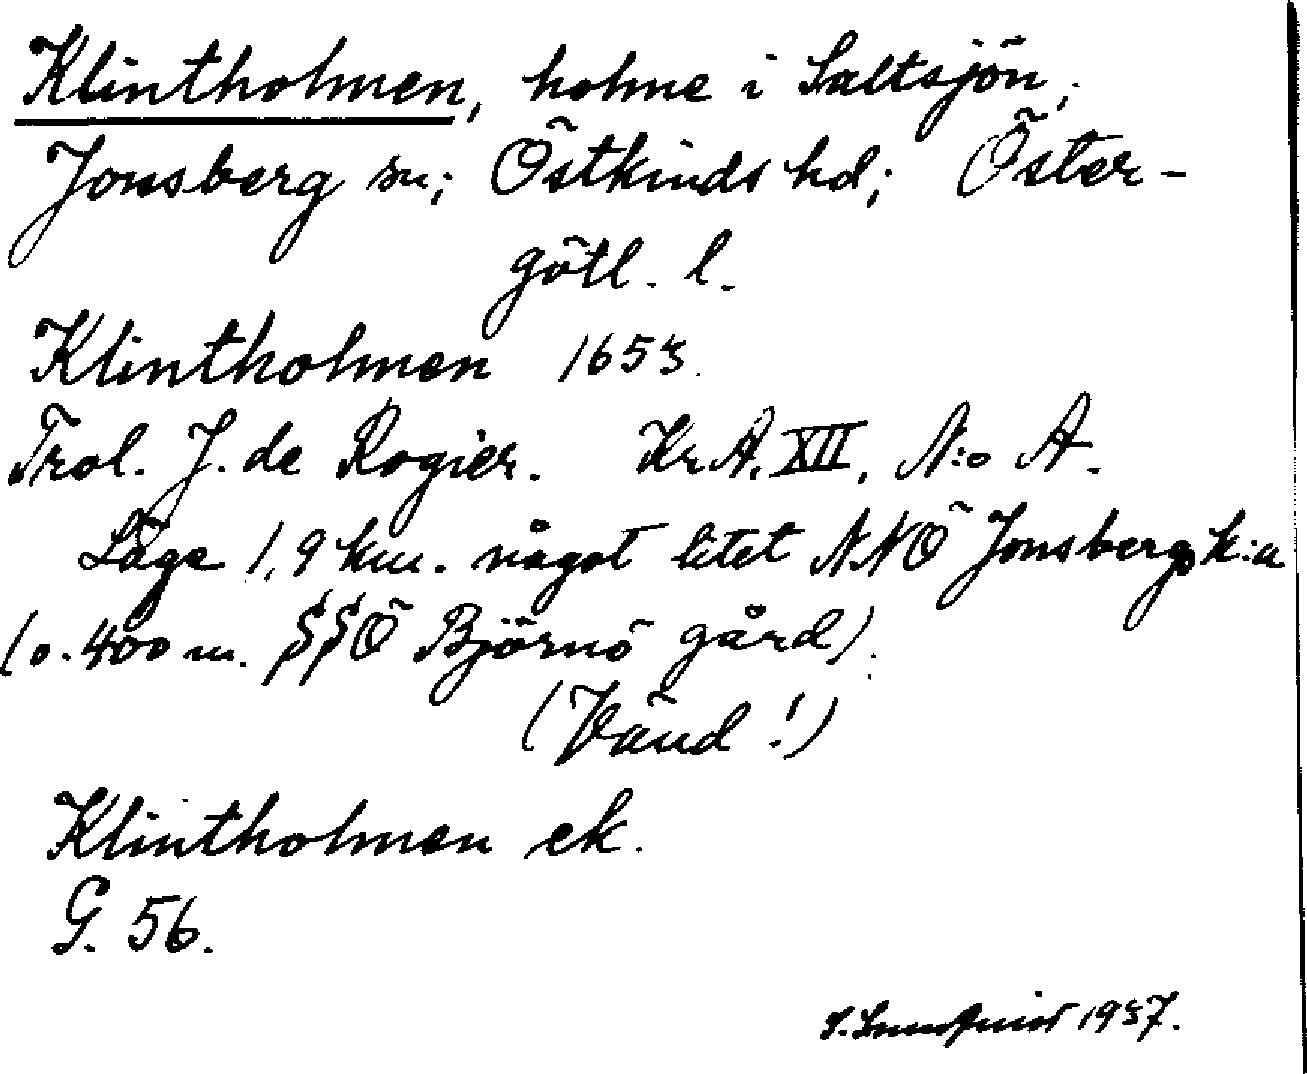 Klintholmen, holme i Saltsjön,
Jonsberg sn; Östkinds hd; Öster-
götl. l.
Klintholmen 1653.
Trol. J. de Rogier. Kr.A. XII, N:o A.
Läge 1,9 km. något litet NNÖ Jonsbergs k:a
(o. 400 m. SSÖ Björnö gård).
(Vänd!)
Klintholmen ek.
G. 56.
1937.